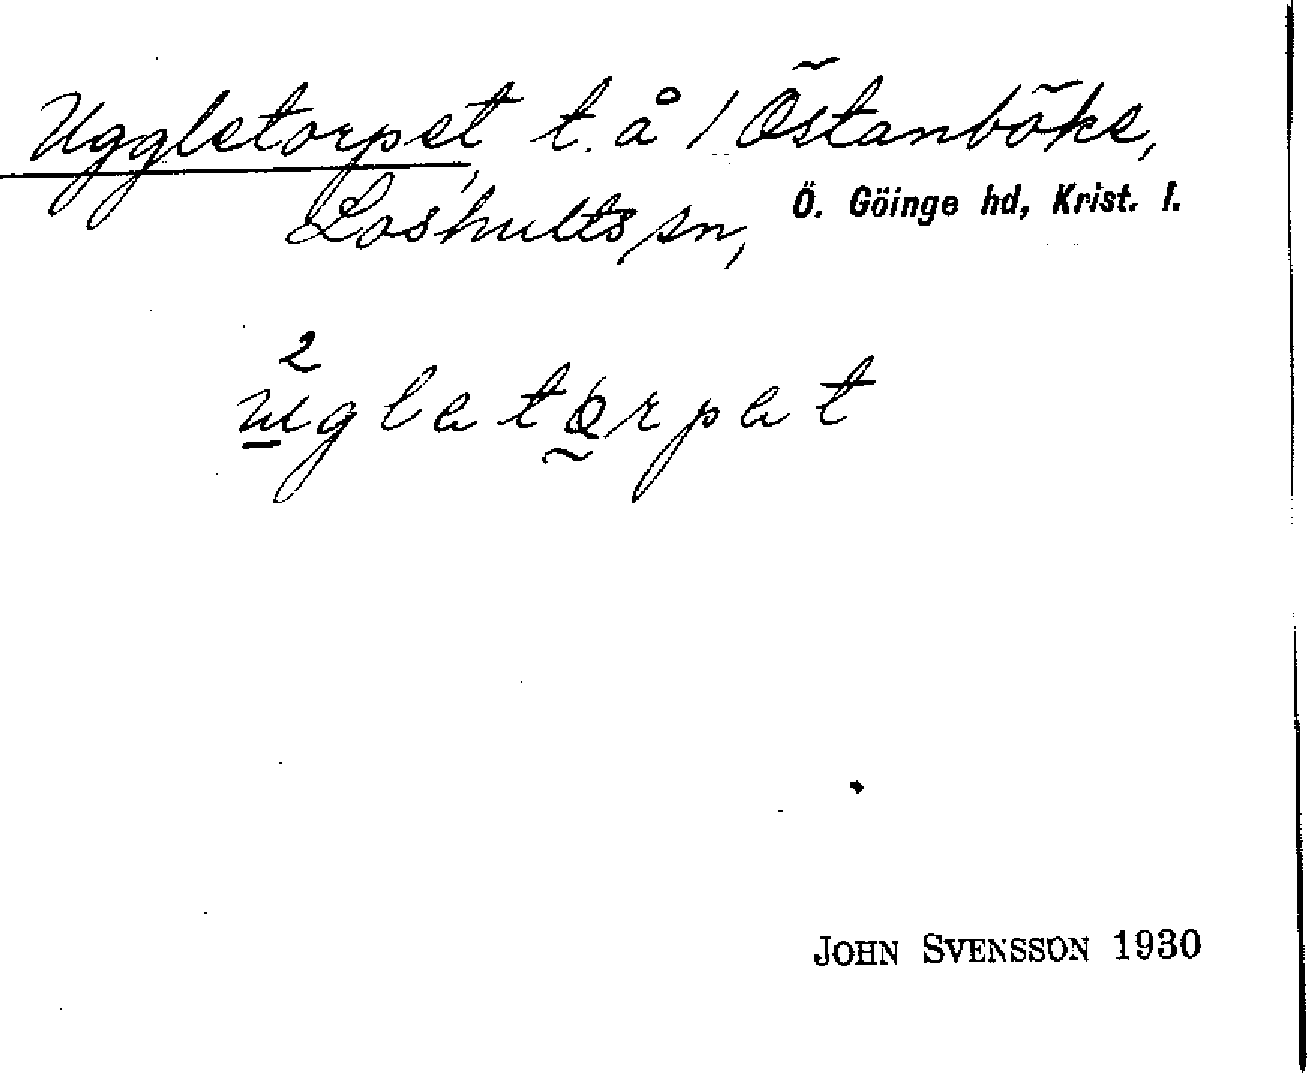 Uggletorpet, t. å 1 Östanböke,
Loshults sn, Ö. Göinge hd, Krist. l.
2
ugletorpet
JOHN SVENSSON 1930